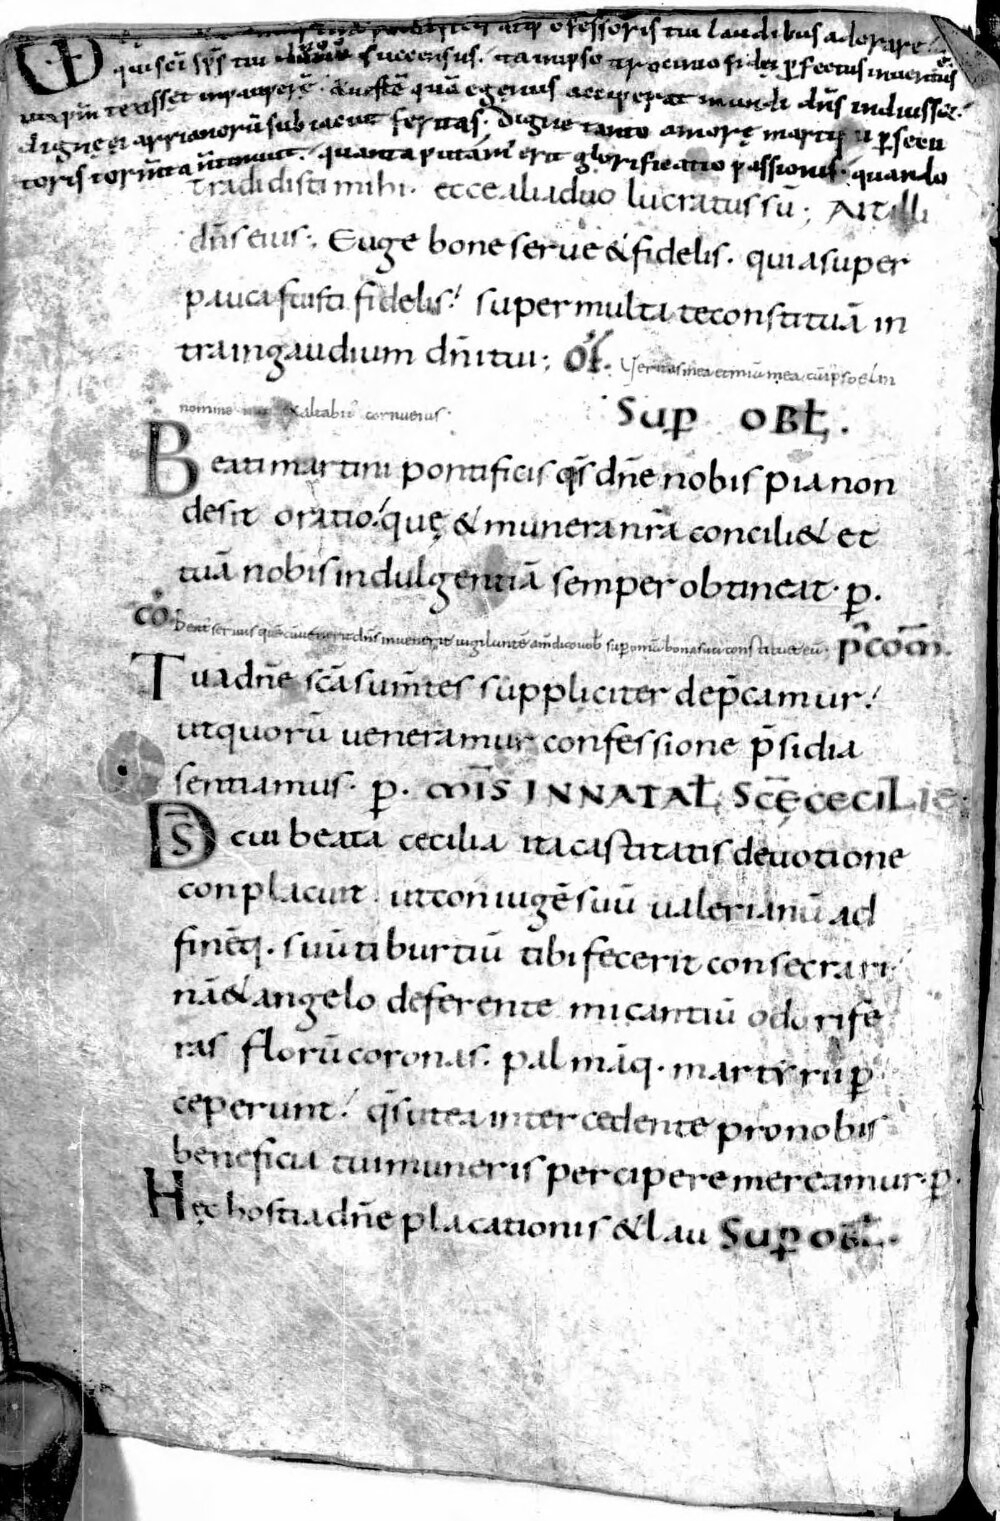 atq; cfessoris tui laudibus adorare.
qui sci sp̄s tui succensus. ita in ipso tirocinio fidei ꝑfectus inuentus
ut xp̄m texisset in paupere. & uestē quā egenus acciperat mundi dn̄s induisset.
digne ei arrianorū subiacuit feritas. digne tanto amore martyrii ꝑsecu
toris tormta n̄ timuit. quanta putam' erit glorificatio passionis. quando
tradidisti mihi. ecce alia duo lucratus sū; Ait illi
dn̄s eius; Euge bone serue & fidelis. quia super
pauca fuisti fidelis! super multa te constituā in
tra in gaudium dn̄i tui; OF. Veritas mea et miā mea cū ipso et in
nomine meo exaltabit' cornu eius.
SUP OBŁ.
Beati martini pontificis q̄s dn̄e nobis pia non
desit oratio! quę & munera nr̄a conciliet et
tuā nobis indulgentiā semper obtineat. ꝑ.
CŌ. Beat' seruus quē cū uenerit dn̄s inuenerit uigilantē am̄ dico uob' sup omā bona sua constituet eū. P̄ COM̄.
Tua dn̄e sc̄a sum̄tes suppliciter dep̄camur!
ut quorū ueneramur confessione p̄sidia
sentiamus. ꝑ. MĪS IN NATAŁ SC̄Ę CECILIE
D̄S cui beata cecilia ita castitatis deuotione
conplacuit ut coniugē suū ualerianū ad
finēq. suū tiburtiū tibi fecerit consecrari
nā & angelo deferente micantiū odorife
ras florū coronas. palmāq. martyrii ꝑ
ceperunt! q̄s ut ea intercedente pro nobis
beneficia tui muneris percipere mereamur. ꝑ.
Hęc hostia dn̄e placationis & lau SUP OBŁ.